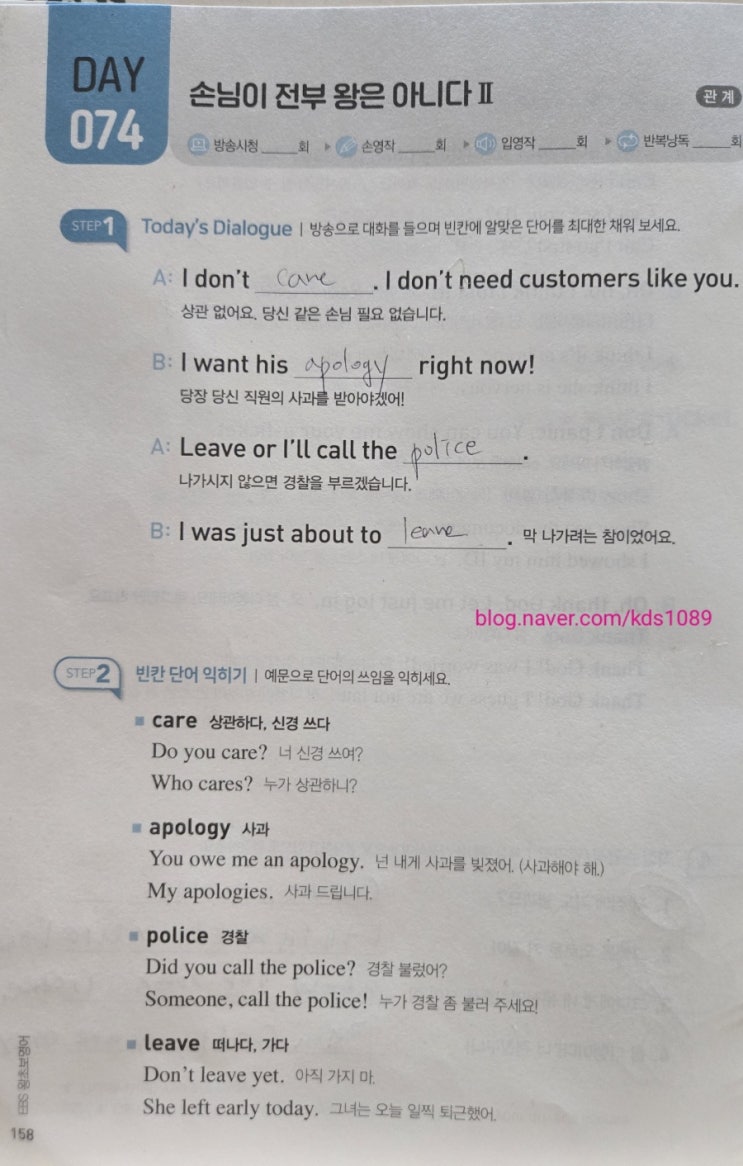 DAY
074
손님이 전부 왕은 아니다 Ⅱ
관계
방송시청 _____회 ▶ 손영작 _____회 ▶ 입영작 _____회 ▶ 반복낭독 _____회
STEP 1 Today's Dialogue | 방송으로 대화를 들으며 빈칸에 알맞은 단어를 최대한 채워 보세요.
A: I don't care. I don't need customers like you.
상관 없어요. 당신 같은 손님 필요 없습니다.
B: I want his apology right now!
당장 당신 직원의 사과를 받아야겠어!
A: Leave or I'll call the police.
나가시지 않으면 경찰을 부르겠습니다.
B: I was just about to leave. 막 나가려는 참이었어요.
blog.naver.com/kds1089
STEP 2 빈칸 단어 익히기 | 예문으로 단어의 쓰임을 익히세요.
■ care 상관하다, 신경 쓰다
Do you care? 너 신경 쓰여?
Who cares? 누가 상관하니?
■ apology 사과
You owe me an apology. 넌 내게 사과를 빚졌어. (사과해야 해.)
My apologies. 사과 드립니다.
■ police 경찰
Did you call the police? 경찰 불렀어?
Someone, call the police! 누가 경찰 좀 불러 주세요!
■ leave 떠나다, 가다
Don't leave yet. 아직 가지 마.
She left early today. 그녀는 오늘 일찍 퇴근했어.
EBS 왕초보영어
158